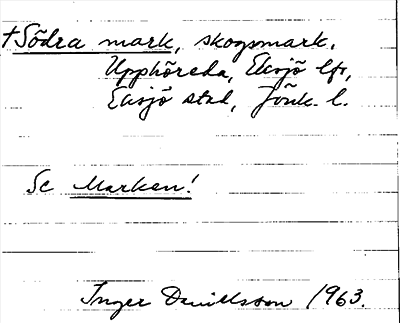 †Södra mark, skogsmark,
Upphöreda, Eksjö lfs,
Eksjö stad, Jönk. l.
Se Marken!
Inger Danielsson 1963.